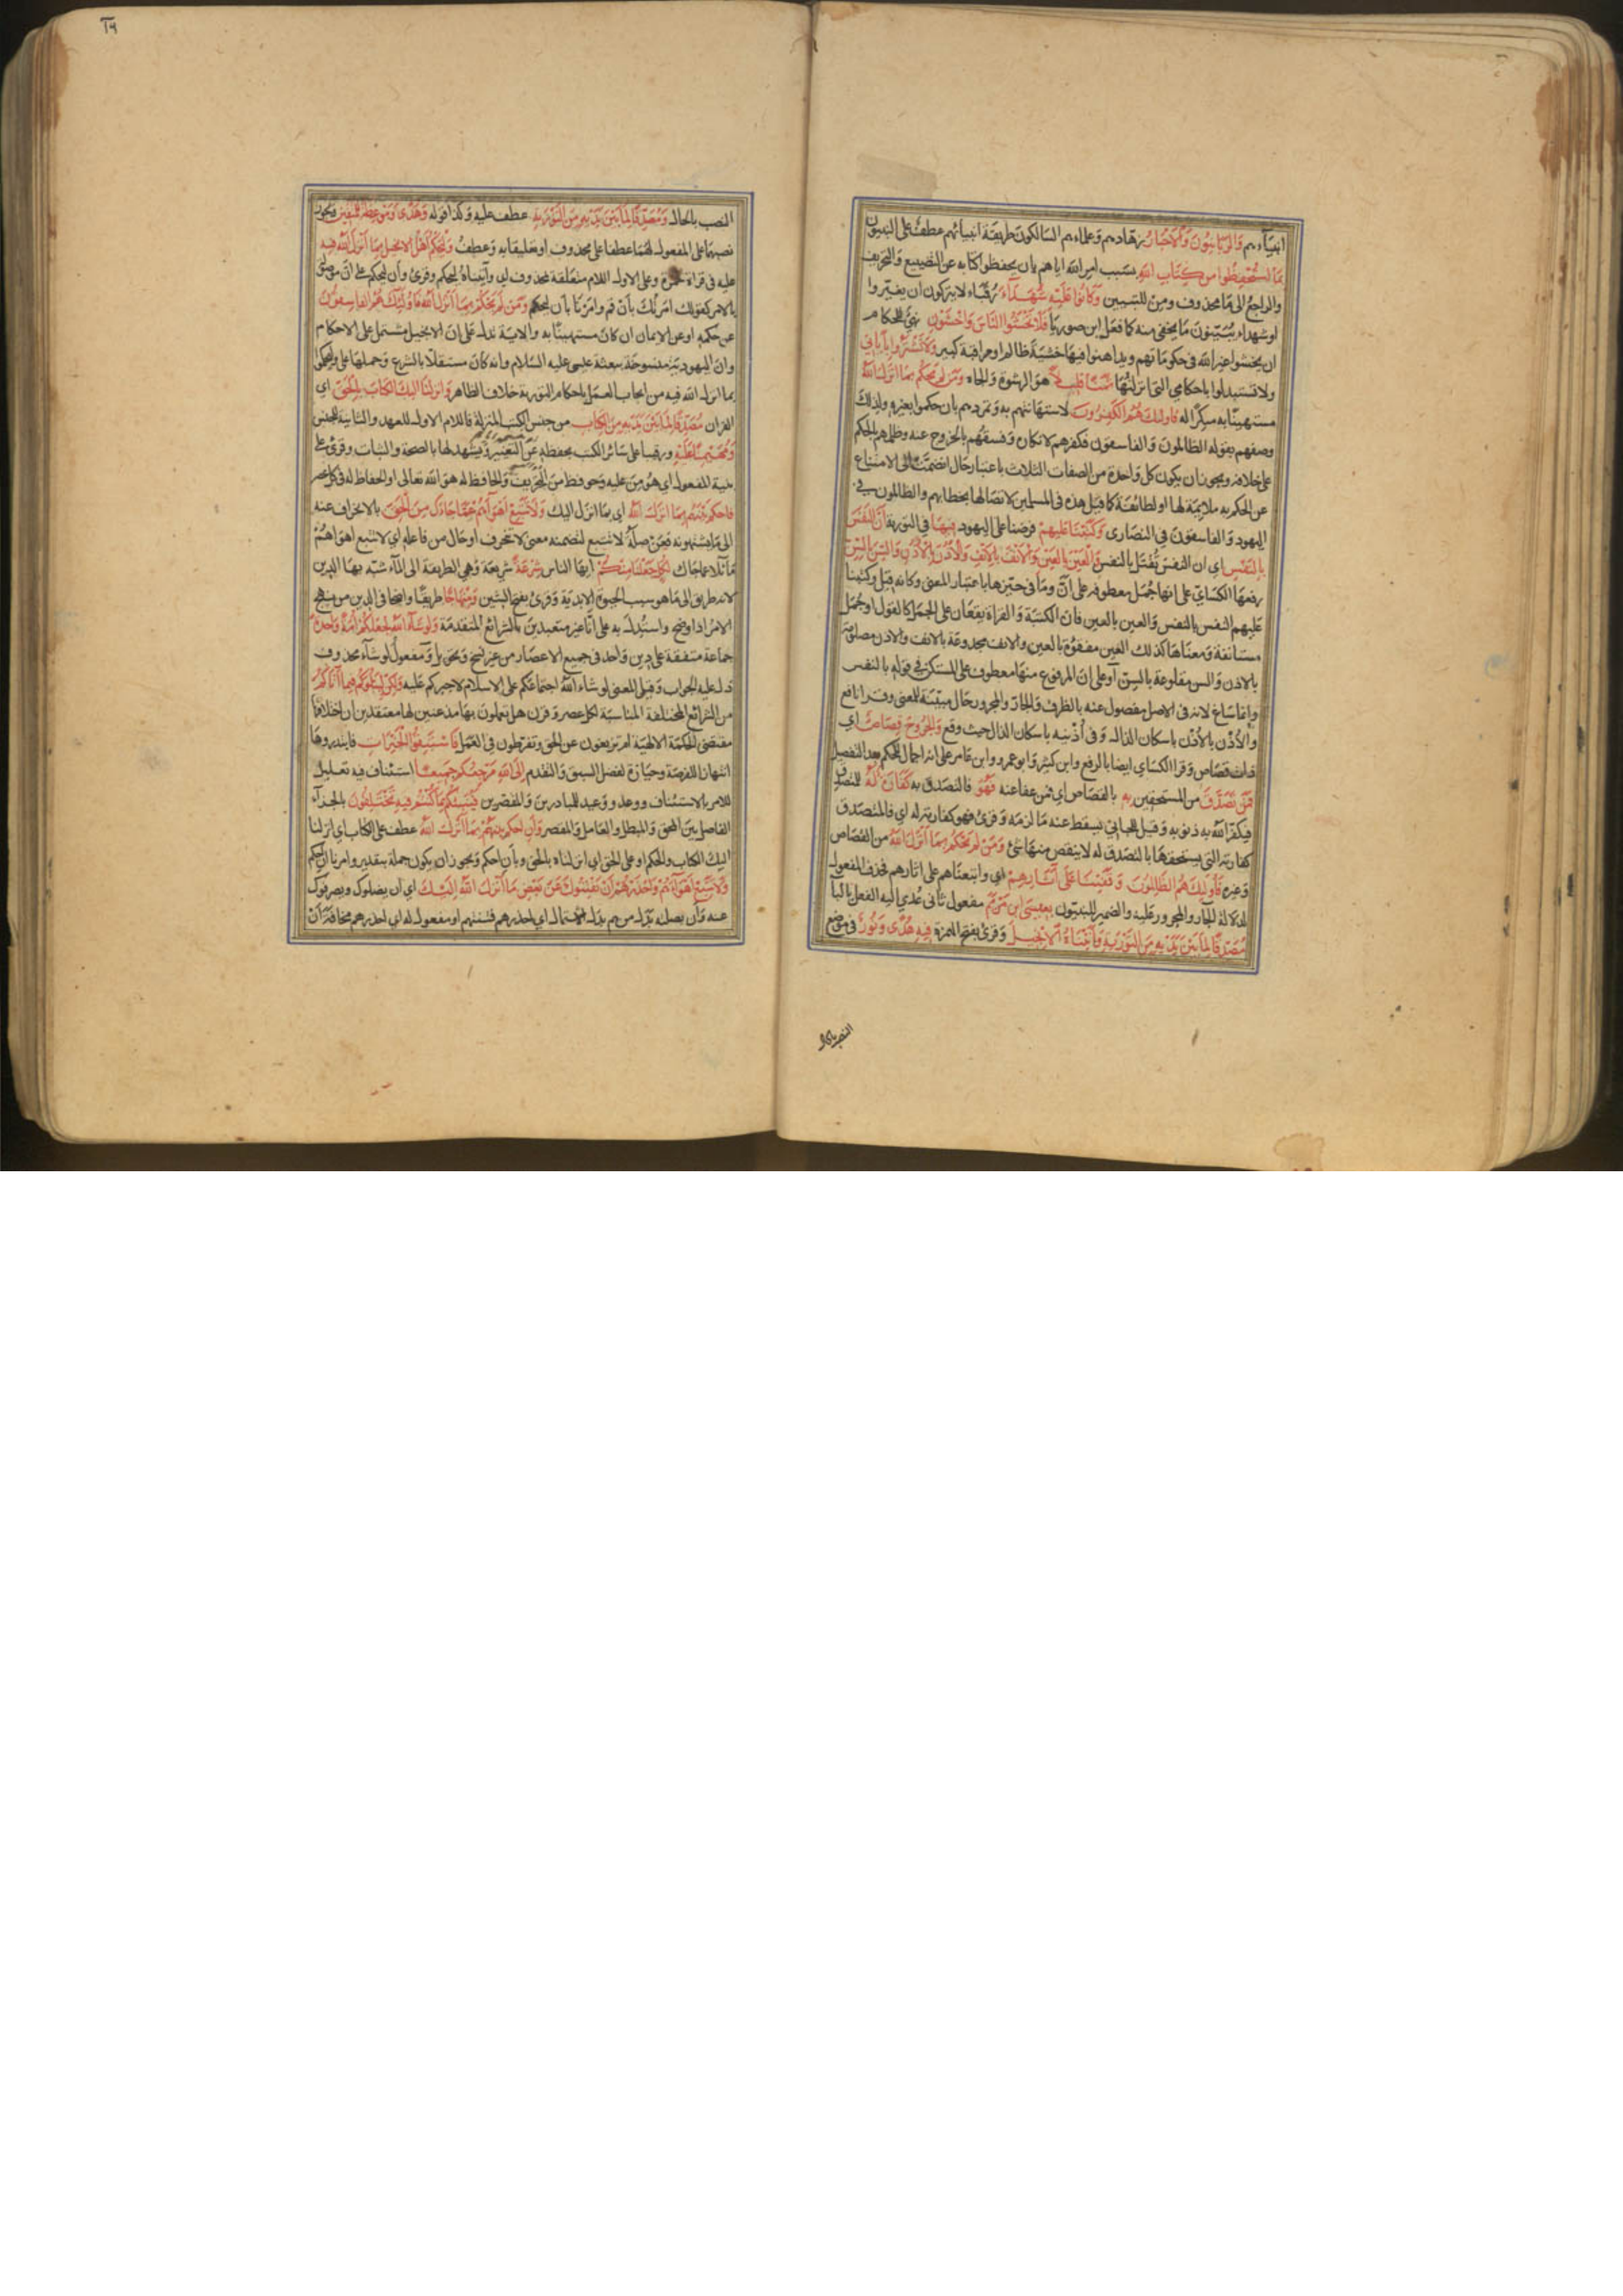 انبيآءهم وَالرَّبَّانِيُّونَ وَالْاَحْبَارُ زهادهم وعلماءهم السالكون طريقة انبيائهم عطف على النبيون
بِمَا اسْتُحْفِظُوا مِنْ كِتَابِ اللهِ بسبب امر الله اياهم بان يحفظوا كتابه عن التضييع والتحريف
والراجع الى ما محذوف ومن للتبيين وَكَانُوا عَلَيْهِ شُهَدَآءَ رقباء لا يتركون ان يغيروا
او شهداء يبينون ما يخفى منه كما فعل ابن صوريا فَلَا تَخْشَوُا النَّاسَ وَاخْشَوْنِ نهى للحكام
ان يخشوا غير الله فى حكوماتهم ويداهنوا فيها خشية ظالم او مراقبة كبير وَلَا تَشْتَرُوا بِاٰيَاتِى
ولا تستبدلوا باحكامى التى انزلتها ثَمَنًا قَلِيلًا هو الرشوة والجاه وَمَنْ لَمْ يَحْكُمْ بِمَا اَنْزَلَ اللهُ
مستهينا به منكرا له فَاُولٰئِكَ هُمُ الْكٰفِرُونَ لاستهانتهم به وتمردهم بان حكموا بغيره ولذلك
وصفهم بقوله الظالمون والفاسقون فكفرهم لانكاره وفسقهم بالخروج عنه وظلمهم بالحكم
على خلافه ويجوز ان يكون كل واحدة من الصفات الثلاث باعتبار حال انضمت الى الامتناع
عن الحكم به ملايمة لها او لطائفة كما قيل هذه فى المسلمين لاتصالها بخطابهم والظالمون فى
اليهود والفاسقون فى النصارى وَكَتَبْنَا عَلَيْهِمْ فرضنا على اليهود فِيهَا فى التورية اَنَّ النَّفْسَ
بِالنَّفْسِ اى ان النفس تقتل بالنفس وَالْعَيْنَ بِالْعَيْنِ وَالْاَنْفَ بِالْاَنْفِ وَالْاُذُنَ بِالْاُذُنِ وَالسِّنَّ بِالسِّنِّ
رفعها الكسائى على انها جمل معطوفة على ان وما فى حيزها باعتبار المعنى وكانه قيل وكتبنا
عليهم النفس بالنفس والعين بالعين فان الكتبة والقراة يقعان على الجمل كالقول او جمل
مستانفة ومعناها كذلك العين مفقؤة بالعين والانف مجدوعة بالانف والاذن مصلومة
بالاذن والسن مقلوعة بالسن او على ان المرفوع منها معطوف على المستكن فى قوله بالنفس
وانما ساغ لانه فى الاصل مفصول عنه بالظرف والجار والمجرور حال مبينة للمعنى وقرا نافع
والأذْن بالأذْن باسكان الذال وفى أذنيه باسكان الذال حيث وقع وَالْجُرُوحَ قِصَاصٌ اى
ذات قصاص وقرا الكسائى ايضا بالرفع وابن كثير وابو عمرو وابن عامر على انه اجمال للحكم بعد التفصيل
فَمَنْ تَصَدَّقَ من المستحقين بِهِ بالقصاص اى فمن عفا عنه فَهُوَ فالتصدق به كَفَّارَةٌ لَهُ للمتصدق
فيكفر الله به ذنوبه وقيل للجانى يسقط عنه ما لزمه وقرئ فهو كفارته له اى فالمتصدق
كفارته التى يستحقها بالتصدق له لا ينقص منها شئ وَمَنْ لَمْ يَحْكُمْ بِمَا اَنْزَلَ اللهُ من القصاص
وغيره فَاُولٰئِكَ هُمُ الظَّالِمُونَ وَقَفَّيْنَا عَلٰى اٰثَارِهِمْ اى واتبعناهم على اثارهم فحذف المفعول
لدلالة الجار والمجرور عليه والضمير للنبيون بِعِيسَى ابْنِ مَرْيَمَ مفعول ثانى عدى اليه الفعل بالبا
مُصَدِّقًا لِمَا بَيْنَ يَدَيْهِ مِنَ التَّوْرٰيةِ وَاٰتَيْنَاهُ الْاِنْجِيلَ وقرئ بفتح الهمزة فِيهِ هُدًى وَنُورٌ فى موضع
النصب بالحال
٦٩
النصب بالحال وَمُصَدِّقًا لِمَا بَيْنَ يَدَيْهِ مِنَ التَّوْرٰيةِ عطف عليه وكذا قوله وَهُدًى وَمَوْعِظَةً لِلْمُتَّقِينَ ويجوز
نصبهما على المفعول لهما عطفا على محذوف او تعليقا به وعطف وَلْيَحْكُمْ اَهْلُ الْاِنْجِيلِ بِمَا اَنْزَلَ اللهُ فِيهِ
عليه فى قراة حمزة وعلى الاول اللام متعلقة بمحذوف اى وآتيناه ليحكم وقرئ وأن ليحكم على ان موصولة
بالامر كقولك امرتك بان قم وامرنا بان ليحكم وَمَنْ لَمْ يَحْكُمْ بِمَا اَنْزَلَ اللهُ فَاُولٰئِكَ هُمُ الْفَاسِقُونَ
عن حكمه او عن الايمان ان كان مستهينا به والاية تدل على ان الانجيل مشتمل على الاحكام
وان اليهودية منسوخة ببعثة عيسى عليه السلام وانه كان مستقلا بالشرع وحملها على وليحكموا
بما انزل الله فيه من ايجاب العمل باحكام التورية خلاف الظاهر وَاَنْزَلْنَا اِلَيْكَ الْكِتَابَ بِالْحَقِّ اى
القران مُصَدِّقًا لِمَا بَيْنَ يَدَيْهِ مِنَ الْكِتَابِ من جنس الكتب المنزلة فاللام الاولى للعهد والثانية للجنس
وَمُهَيْمِنًا عَلَيْهِ ورقيبا على سائر الكتب يحفظه عن التغيير ويشهد لها بالصحة والثبات وقرئ على
بنية المفعول اى هومن عليه وحوفظ من التحريف والحافظ له هو الله تعالى او الحفاظ له فى كل عصر
فَاحْكُمْ بَيْنَهُمْ بِمَا اَنْزَلَ اللهُ اى بما انزل اليك وَلَا تَتَّبِعْ اَهْوَآءَهُمْ عَمَّا جَآءَكَ مِنَ الْحَقِّ بالانحراف عنه
الى ما يشتهونه فعن صلة لا تتبع لتضمنه معنى لا تنحرف او حال من فاعله اى لا تتبع اهواءهم
مائلا عما جاك لِكُلٍّ جَعَلْنَا مِنْكُمْ ايها الناس شِرْعَةً شريعة وهى الطريقة الى المآء شبه بها الدين
لانه طريق الى ما هو سبب الحيوة الابدية وقرئ بفتح الشين وَمِنْهَاجًا طريقا واضحا فى الدين من نهج
الامر اذا وضح واستدل به على انا غير متعبدين بالشرائع المتقدمة وَلَوْ شَآءَ اللهُ لَجَعَلَكُمْ اُمَّةً وَاحِدَةً
جماعة متفقة على دين واحد فى جميع الاعصار من غير نسخ وتحويل ومفعول لو شآء محذوف
دل عليه الجواب وقيل المعنى لو شاء الله اجتماعكم على الاسلام لاجبركم عليه وَلٰكِنْ لِيَبْلُوَكُمْ فِيمَا اٰتَاكُمْ
من الشرائع المختلفة المناسبة لكل عصر وقرن هل تعملون بها مذعنين لها معتقدين ان اختلافها
مقتضى الحكمة الالهية ام تزيغون عن الحق وتفرطون فى العمل فَاسْتَبِقُوا الْخَيْرَاتِ فابتدروها
انتهازا للفرصة وحيازة لفضل السبق والتقدم اِلَى اللهِ مَرْجِعُكُمْ جَمِيعًا استئناف فيه تعليل
للامر بالاستئناف ووعد ووعيد للمبادرين والمقصرين فَيُنَبِّئُكُمْ بِمَا كُنْتُمْ فِيهِ تَخْتَلِفُونَ بالجزآء
الفاصل بين المحق والمبطل والعامل والمقصر وَاَنِ احْكُمْ بَيْنَهُمْ بِمَا اَنْزَلَ اللهُ عطف على الكتاب اى انزلنا
اليك الكتاب والحكم او على الحق اى انزلناه بالحق وبأن احكم ويجوز ان يكون جملة بتقدير وامرنا ان احكم
وَلَا تَتَّبِعْ اَهْوَآءَهُمْ وَاحْذَرْهُمْ اَنْ يَفْتِنُوكَ عَنْ بَعْضِ مَا اَنْزَلَ اللهُ اِلَيْكَ اى ان يضلوك ويصرفوك
عنه وان بصلته بدل من هم بدل الاشتمال اى احذرهم فتنتهم او مفعول له اى احذرهم مخافة ان